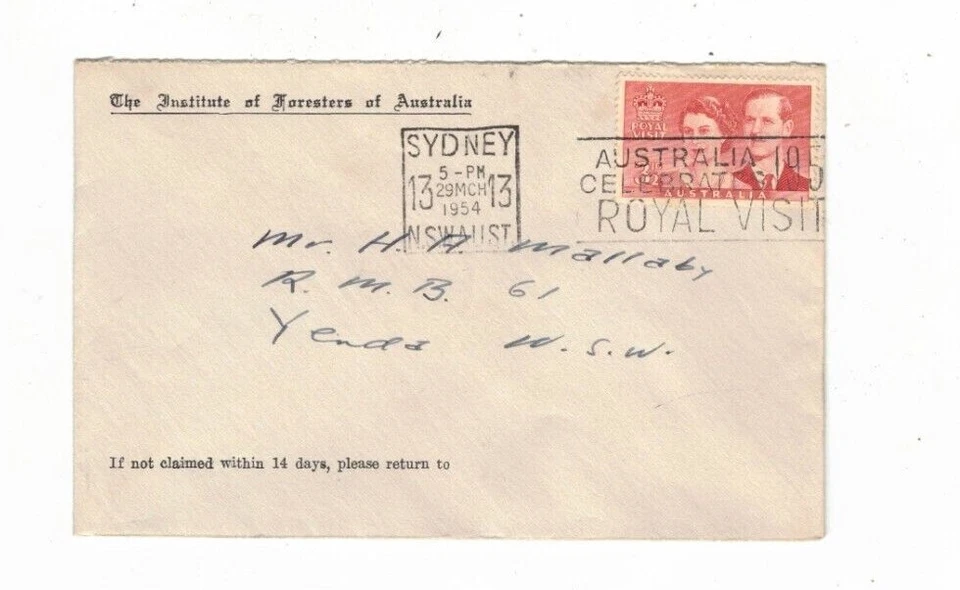 The Institute of Foresters of Australia
ROYAL
VISIT
AUSTRALIA
SYDNEY
5-PM
13 29MCH 13
1954
N.S.W. AUST.
AUSTRALIA
ROYAL VISIT
Mr. H. A. Mallaby
R. M. B. 61
Yenda N.S.W.
If not claimed within 14 days, please return to